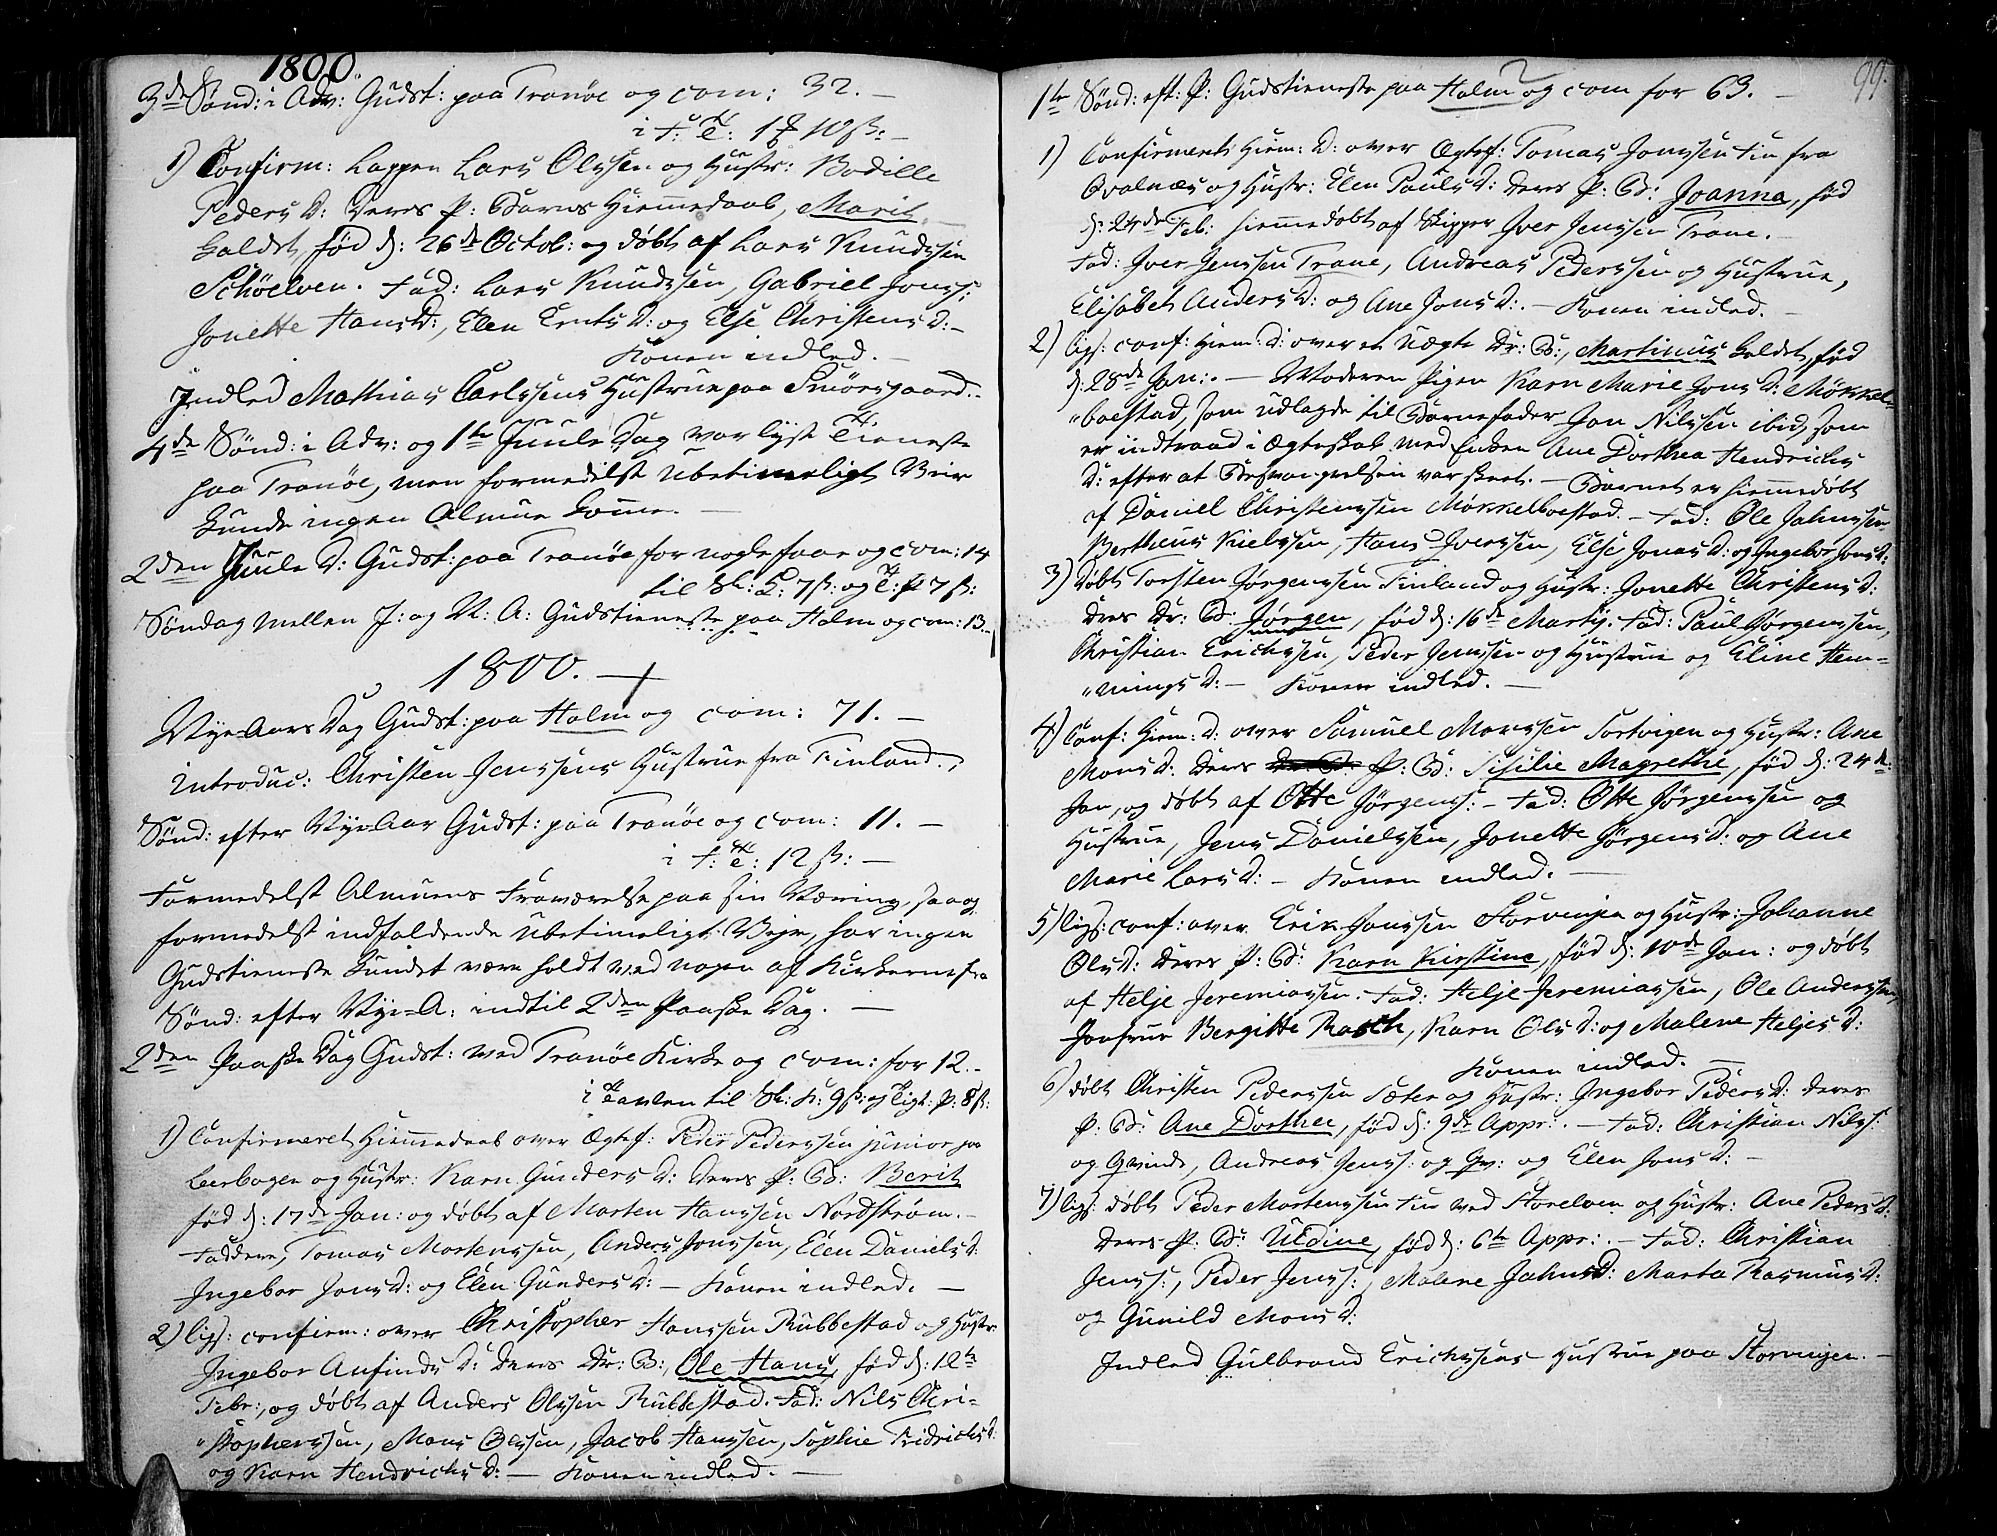 1800.
3de Sønd: i Adv: Gudst: paa Tranøe og com: 32. –
i F: T: 1 10 ß: –
1) Confirm: Lappen Lars Olssen og Hustr: Bodille
Peders D: deres P: Barns Hiemmedaab, Marit
kaldet, født d: 26de Octob: og døbt af Lars Knudssen
Schöelven. Fad: Lars Knudssen, Gabriel Jonss:
Jonette HansD:, Elen Ernts D: og Else Christens D: –
Konen indled. –
Indled Mathias Carlssens Hustrue paa Smörsgaard. –
4de Sønd: i Adv: og 1te Juule Dag var lyst Tieneste
paa Tranöe, men formedelst Ubetimeligt Veir
kunde ingen Almue komme. –
2den Juule D: Gudst: paa Tranöe for nogle faae og com: 14
til Sk: L: 7 ß: og T: P 7 ß:
Söndag mellem J: og N: A: Gudstieneste paa Holm og com: 13.
1800. –
Nye Aars Dag Gudst: paa Holm og com: 71. –
introduc: Christen Jenssens Hustrue fra Finland.
Sønd: efter Nye Aar Gudst: paa Tranöe og com: 11. –
i F: T: 12 ß: –
Formedelst Almuens Fraværelse paa sin Næring, saa og
formedelst indfaldende Ubetimeligt Veir, har ingen
Gudstieneste kundet være holdt ved nogen af Kirkerne fra
Sønd: efter Nye-A: indtil 2den Paaske Dag. –
2den Paaske Dag Gudst: ved Tranöe Kirke og com: for 12. –
i Tavlen til Sk: K: 9 ß: og Ligt: P: 8 ß:
1) Confirmeret Hiemmedaab over Ægtef: Peder Pederssen junior paa
Leerbogen og Hustr: Karn Gunders D: deres P: B: Berit
född d: 17de Jan: og döbt af Morten Hanssen Nordström. –
Faddere, Tomas Mortenssen, Anders Jonssen, Elen Daniels D:
Ingebor Jons D: og Elen Gunders D: – Konen indled. –
2) ligs: confirm: over Christopher Hanssen Rubbestad og Hustr
Ingebor Anfinds D: deres Dr: B:, Ole Hans, född d: 12te
Febr:, og döbt af Anders Olssen Rubbestad. Fad: Nils Chri-
"stopherssen, Mons Olssen, Jacob Hanssen, Sophie Fridrichs D:
og Karn Hendrichs D: – Konen indled. –
99.
1te Sønd: eft: P: Gudstieneste paa Holm og com for 63. –
1) Confirmert Hiem: D: over Ægtef: Tomas Jonssen Fin fra
Qvalnæs og Hustr: Elen Pauls D: deres P: B: Joanna, född
d: 24de Feb: hiemedöbt af Skipper Iver Jenssen Trane.
Fad: Iver Jenssen Trane, Andreas Pederssen og Hustrue,
Elisabet Anders D: og Ane Jons D:. – Konen indled. –
2) ligs: conf: Hiem: D: over et uægte Dr: B:, Martinus kaldet, född
d: 28de Jan:. – Moderen Pigen Karn Marie Jons D: Mökkel-
"boestad, som udlagde til Barnefader Jon Nilssen ibid, som
er indtraad i Ægteskab med Enken Ane Dorthea Hendrichs
D: efter at Besvangrelsen var skeet. – Barnet er hiemmedöbt
af Daniel Christenssen Mökkelboestad. – Fad: Ole Jahnssen
Bertheus Nielssen, Hans Iverssen, Else Jonas D: og Ingebor Jons D:
3) Döbt Torsten Jörgenssen Finland og Hustr: Jonette Christens D:
deres Dr: B: Jörgen, född d: 16de Martij. Fad: Paul Jörgenssen,
Christian Erichssen, Peder Jenssen og Hustrue og Eline Hem-
"mings D: – Konen indled. –
4) Conf: Hiem: D: over Samuel Monssen Sortvigen og Hustr: Ane
Mons D: deres P: B: Sisilie Magrethe, född d: 24de
Jan, og döbt af Otte Jörgenss: – Fad: Otte Jörgenssen og
Hustrue, Jens Danielssen, Jonette Jörgens D: og Ane
Marie Lars D: – Konen indled. –
5) ligs: conf: over Erik Jonssen Storvigen og Hustr: Johanne
Ols D: deres P: B: Karn Kirstine, född d: 10de Jan: og döbt
af Helje Jeremiassen. Fad: Helje Jeremiassen, Ole Anderssen,
Jomfrue Bergitte Rasch, Karn Ols D: og Malene Heljes D:
Konen indled. –
6) döbt Christen Pederssen Sæter og Hustr: Ingebor Peders D: deres
P: B: Ane Dorthee, född d: 9de Appr:. – Fad: Christian Nilss:
og Qvinde, Andreas Jenss: og Qv: og Elen Jons D: –
7) ligs: döbt Peder Mortenssen Fin ved Storelven og Hustr: Ane Peders D:
deres P: B: Uldine, född d: 6te Appr:. – Fad: Christian
Jenss:, Peder Jenss:, Malene Jahns D: Marta Rasmus D:
og Gunild Mons D:
Indled Gulbrand Erichssens Hustrue paa Storvigen. –